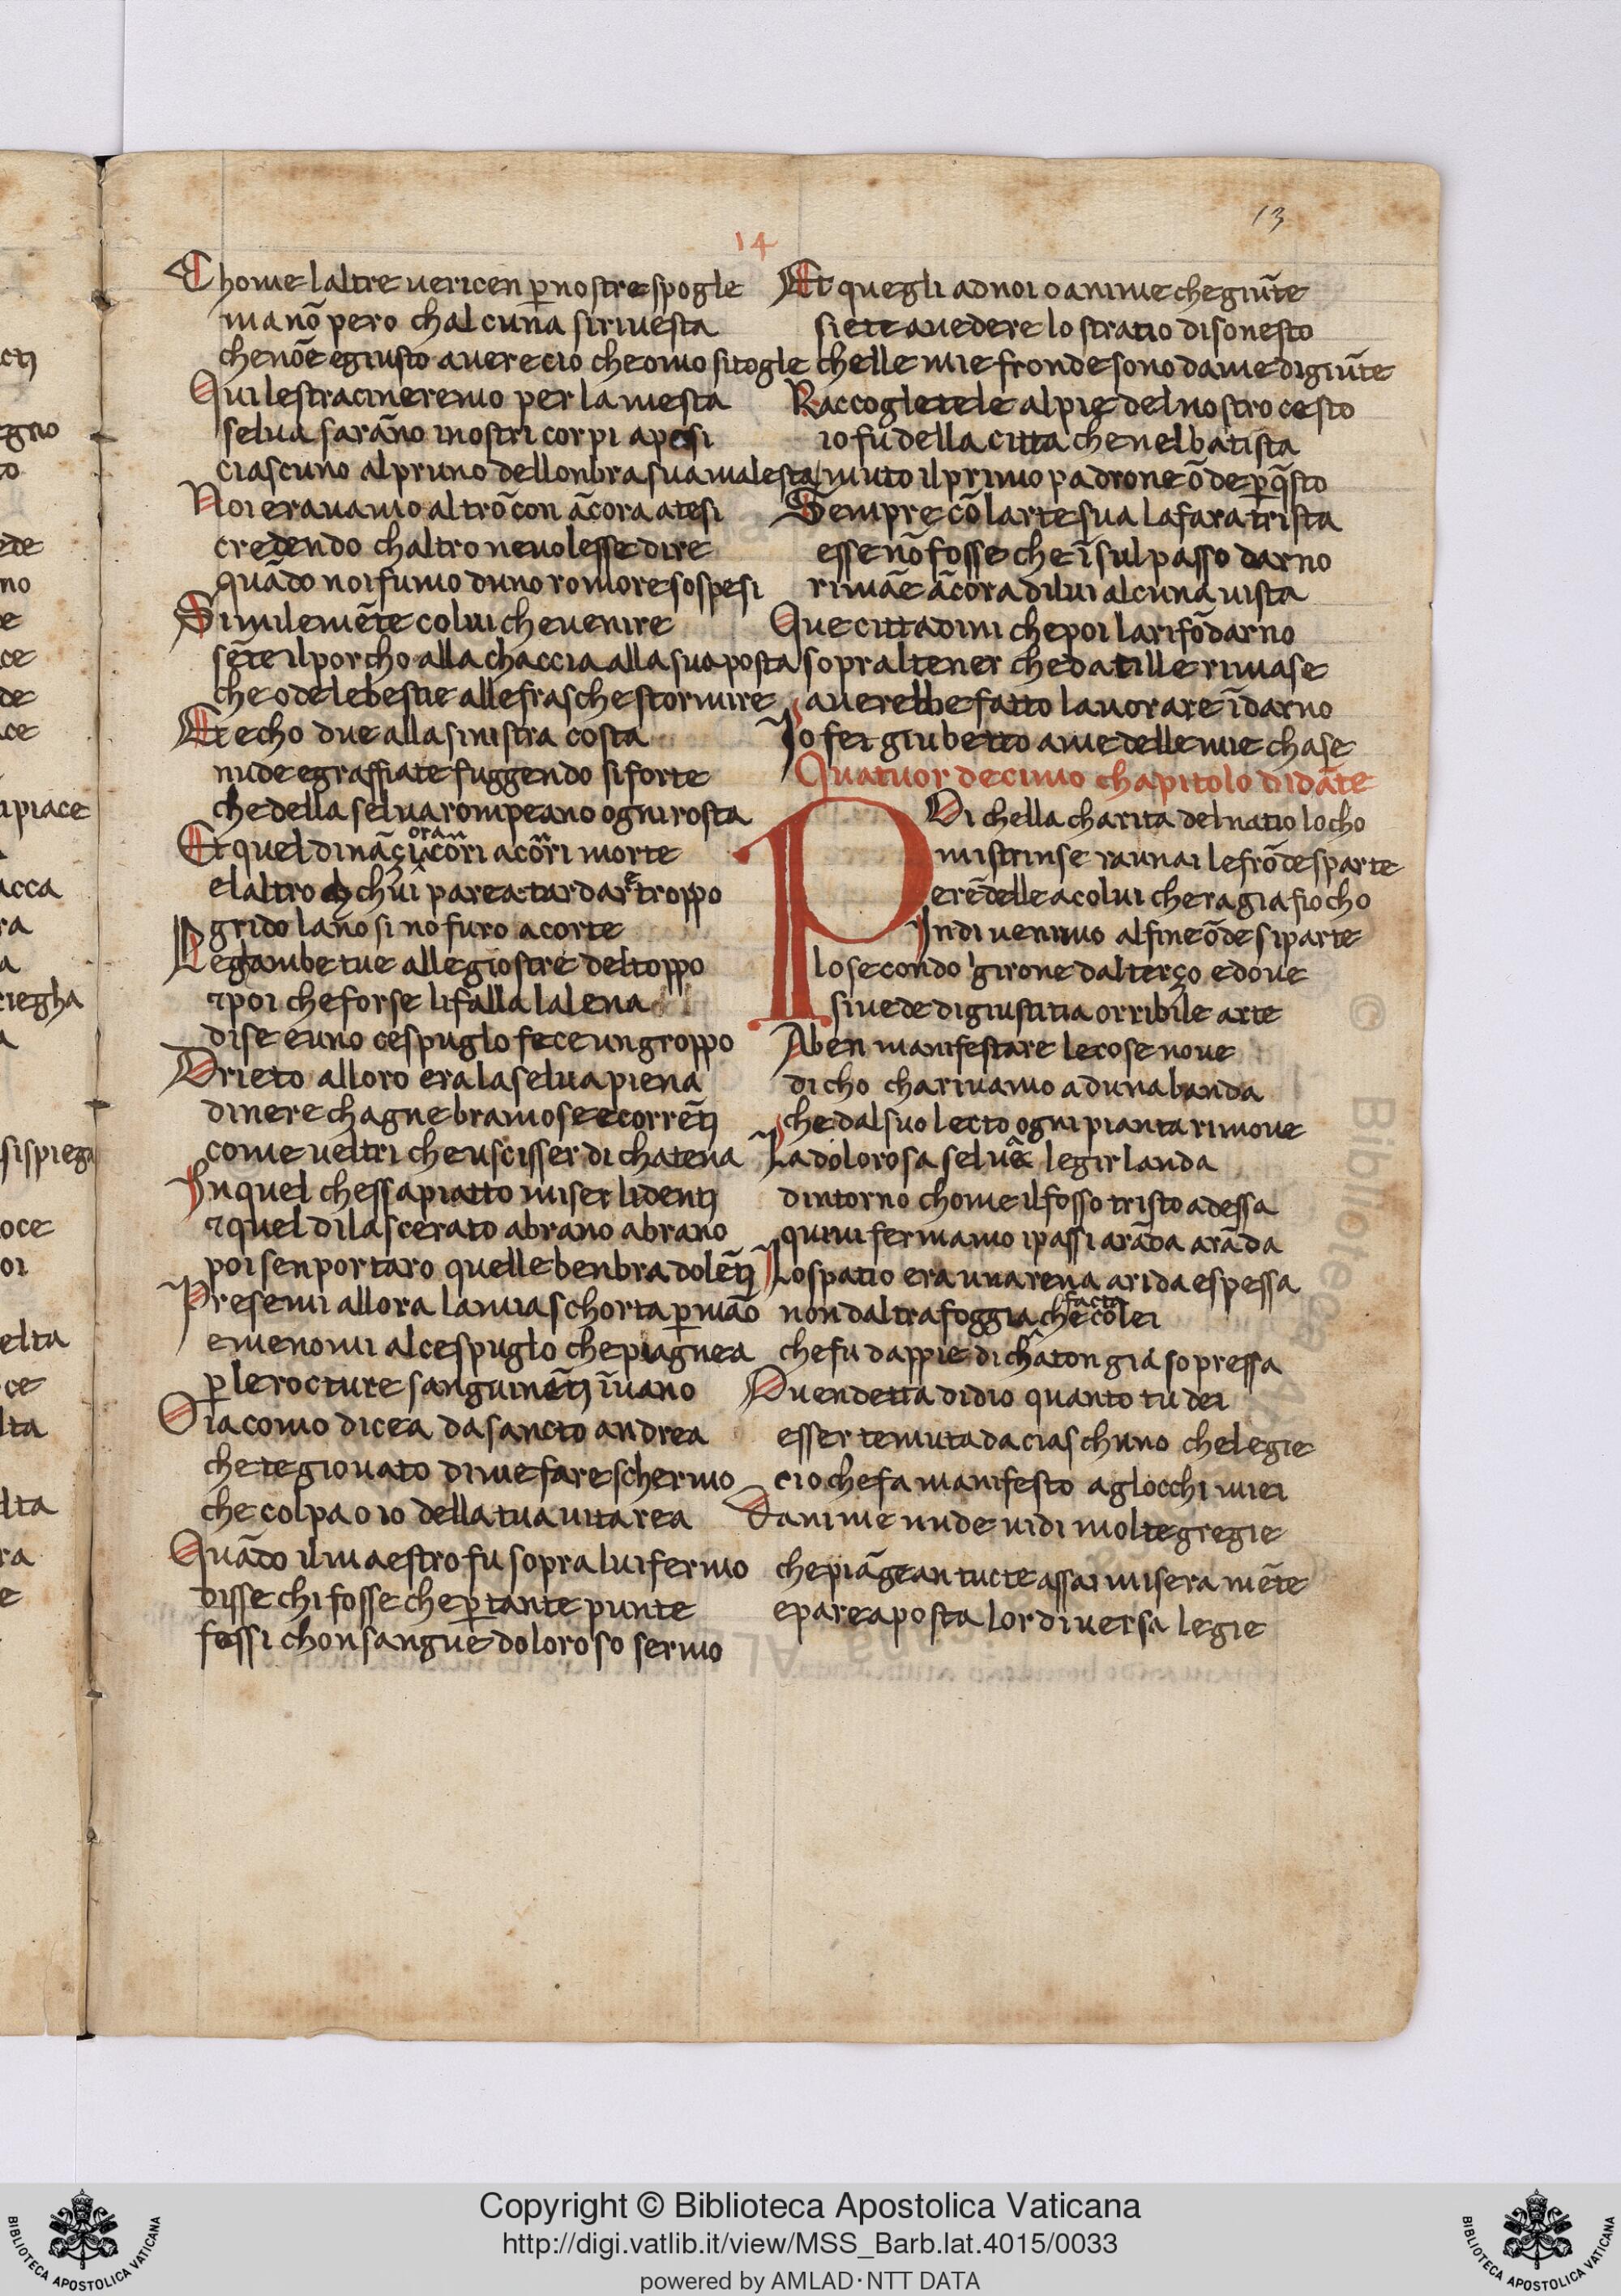 13
14
Chome laltre vericen p̄ nostre spogle
ma nō pero chalcuna si rivesta
che nōe egiusto avere cio che omo si togle
Qui le stracineremo per la mesta
selva sarāno i nostri corpi apesi
ciascuno al pruno dellonbra sua malesta
Noi eravamo al trōcon ācora atesi
credendo chaltro ne volesse dire
quādo noi fumo duno romore sospesi
Similemēte colui che venire
sēte il porcho alla chaccia alla sua posta
che ode le bestie alle frasche stormire
Et echo due alla sinistra costa
nude e graffiate fuggendo si forte
che della selva rompeano ogni rosta
Et quel dināçi acorri acorri morte
e laltro chui parea tardare troppo
gridò lano si no furo acorte
Le gambe tue alle giostre del toppo
⁊ poi che forse li falla la lena
di se e uno cespuglo fece un groppo
Drieto alloro era la selva piena
di nere chagne bramose e correñti
come veltri che uscisser di chatena
In quel chessa piatto miser li denti
⁊ quel dilascerato a brano a brano
poi sen portaro quelle benbra dolēti
Presemi allora la mia schorta p̄ mão
e menomi al cespuglo che piagnea
p̄ le rocture sanguinēti īvano
O iacomo dicea da sancto andrea
che te giovato di me fare schermo
che colpa o io della tua vita rea
Quādo il maestro fu sopra lui fermo
disse chi fosse che p̄ tante punte
fossi chon sangue doloroso sermo
Et quegli ad noi o anime che giūte
siete a vedere lo stratio disonesto
chelle mie fronde sono da me digiūte
Raccogletele al pie del nostro cesto
io fu della citta che nel batista
muto il primo padrone ōde p̄ q̄sto
Sempre cō larte sua la fara trista
esse nō fosse che ī sul passo darno
rimāe ācora di lui alcuna vista
Que cittadini che poi la rifōdarno
sopra l cener che datille rimase
averebbe fatto lavorare īdarno
Io fei giubetto a me delle mie chase
Quatuor decimo chapitolo di dāte
POi chella charita del natio locho
mi strinse raunai le frōde sparte
e rēdelle a colui chera gia fiocho
Indi venimo al fine ōde si parte
lo secondo girone dal terço e dove
si vede di giustitia orribile arte
A ben manifestare le cose nove
dicho charivamo ad una banda
che dal suo lecto ogni pianta rimove
La dolorosa selva le girlanda
dintorno chome il fosso tristo ad essa
quivi fermamo i passi a rāda a rāda
Lo spatio era una rena arida e spessa
non daltra foggia facta che colei
che fu dappie di chaton gia sopressa
O vendetta di dio quanto tu dei
esser temuta da ciaschuno che legie
cio che fa manifesto aglocchi miei
Danime nude vidi molte gregie
che piāgean tucte assai misera mēte
e parea posta lor diversa legie
© Biblioteca
Copyright © Biblioteca Apostolica Vaticana
http://digi.vatlib.it/view/MSS_Barb.lat.4015/0033
powered by AMLAD·NTT DATA
BIBLIOTECA APOSTOLICA VATICANA
BIBLIOTECA APOSTOLICA VATICANA